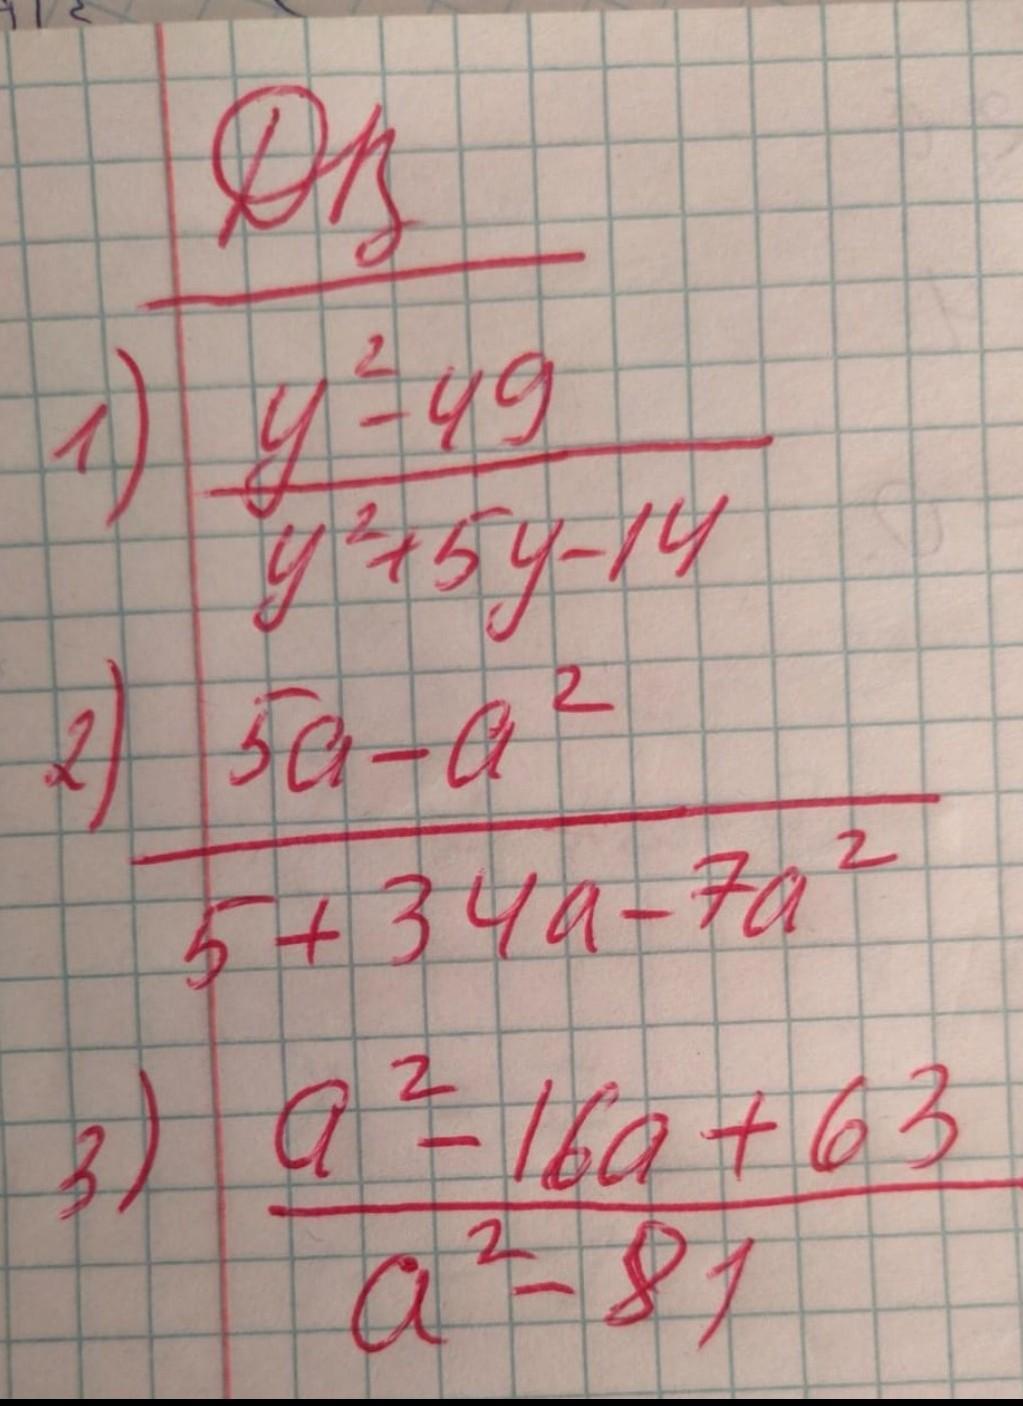 Дз
1) y² - 49
y² + 5y - 14
2) 5a - a²
5 + 34a - 7a²
3) a² - 16a + 63
a² - 81